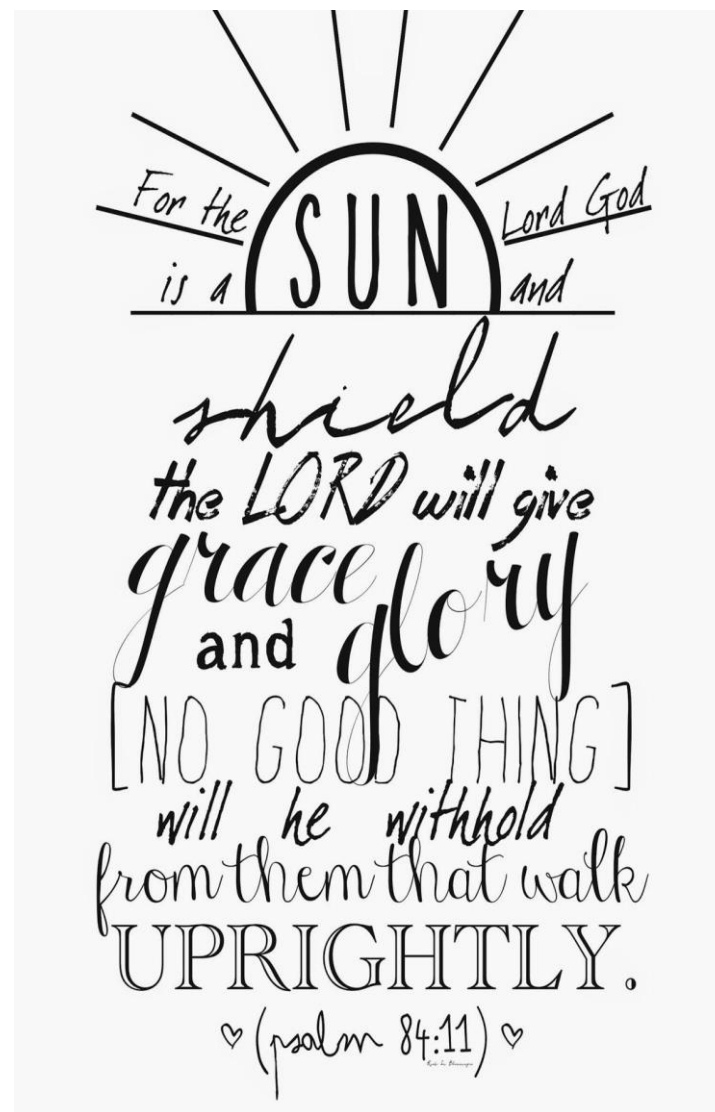 For the Lord God
is a SUN and
shield
the LORD will give
grace
and glory
[NO GOOD THING]
will he withhold
from them that walk
UPRIGHTLY.
♡ (psalm 84:11) ♡